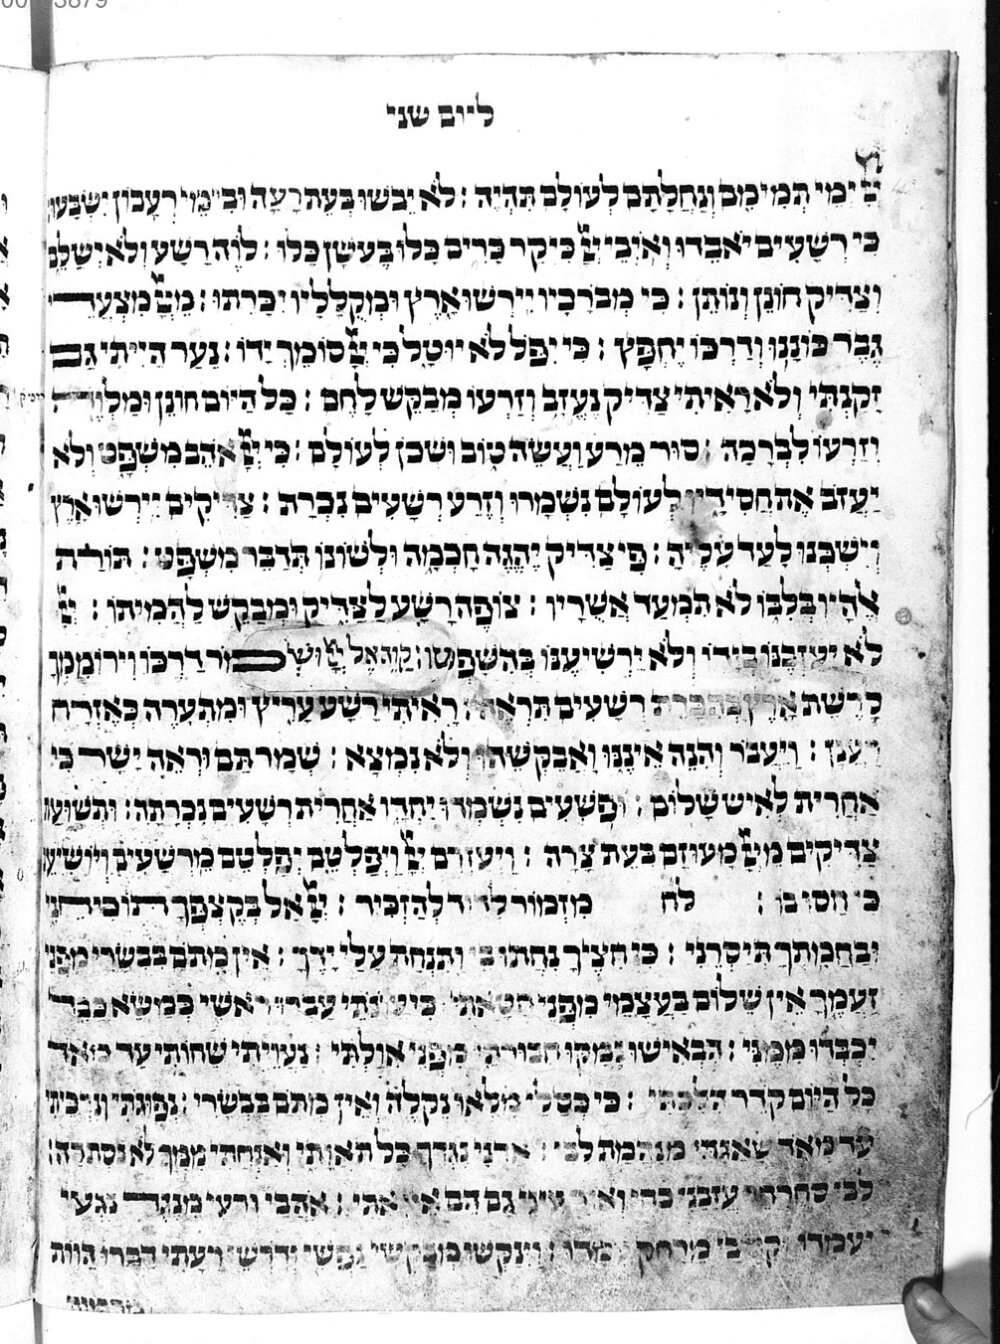 ליום שני
יי ימי תמימם ונחלתם לעולם תהיה : לא יבשו בעת רעה ובימי רעבון ישבעו
כי רשעים יאבדו ואיבי יי כיקר כרים כלו בעשן כלו : לוה רשע ולא ישלם
וצדיק חונן ונותן : כי מבורכיו יירשו ארץ ומקלליו יכרתו : מיי מצעדי
גבר כוננו ודרכו יחפץ : כי יפל לא יוטל כי יי סומך ידו : נער הייתי גם
זקנתי ולא ראיתי צדיק נעזב וזרעו מבקש לחם : כל היום חונן ומלוה
וזרעו לברכה : סור מרע ועשה טוב ושכן לעולם : כי יי אהב משפט ולא
יעזב את חסידיו לעולם נשמרו וזרע רשעים נכרת : צדיקים יירשו ארץ
וישכנו לעד עליה : פי צדיק יהגה חכמה ולשונו תדבר משפט : תורת
אלהיו בלבו לא תמעד אשריו : צופה רשע לצדיק ומבקש להמיתו : יי
לא יעזבנו בידו ולא ירשיענו בהשפטו : קוה אל יי ושמור דרכו וירוממך
לרשת ארץ בהכרת רשעים תראה : ראיתי רשע עריץ ומתערה כאזרח
רענן : ויעבר והנה איננו ואבקשהו ולא נמצא : שמר תם וראה ישר כי
אחרית לאיש שלום : ופשעים נשמדו יחדו אחרית רשעים נכרתה : ותשועת
צדיקים מיי מעוזם בעת צרה : ויעזרם יי ויפלטם יפלטם מרשעים ויושיעם
כי חסו בו : לח מזמור לדוד להזכיר : יי אל בקצפך תוכיחני
ובחמתך תיסרני : כי חציך נחתו בי ותנחת עלי ידך : אין מתם בבשרי מפני
זעמך אין שלום בעצמי מפני חטאתי כי עונתי עברו ראשי כמשא כבד
יכבדו ממני : הבאישו נמקו חבורתי מפני אולתי : נעויתי שחותי עד מאד
כל היום קדר הלכתי : כי כסלי מלאו נקלה ואין מתם בבשרי : נפוגתי ונדכיתי
עד מאד שאגתי מנהמת לבי : אדני נגדך כל תאותי ואנחתי ממך לא נסתרה :
לבי סחרחר עזבני כחי ואור עיני גם הם אין אתי : אהבי ורעי מנגד נגעי
יעמדו וקרבי מרחק עמדו : וינקשו מבקשי נפשי ודרשי רעתי דברו הוות